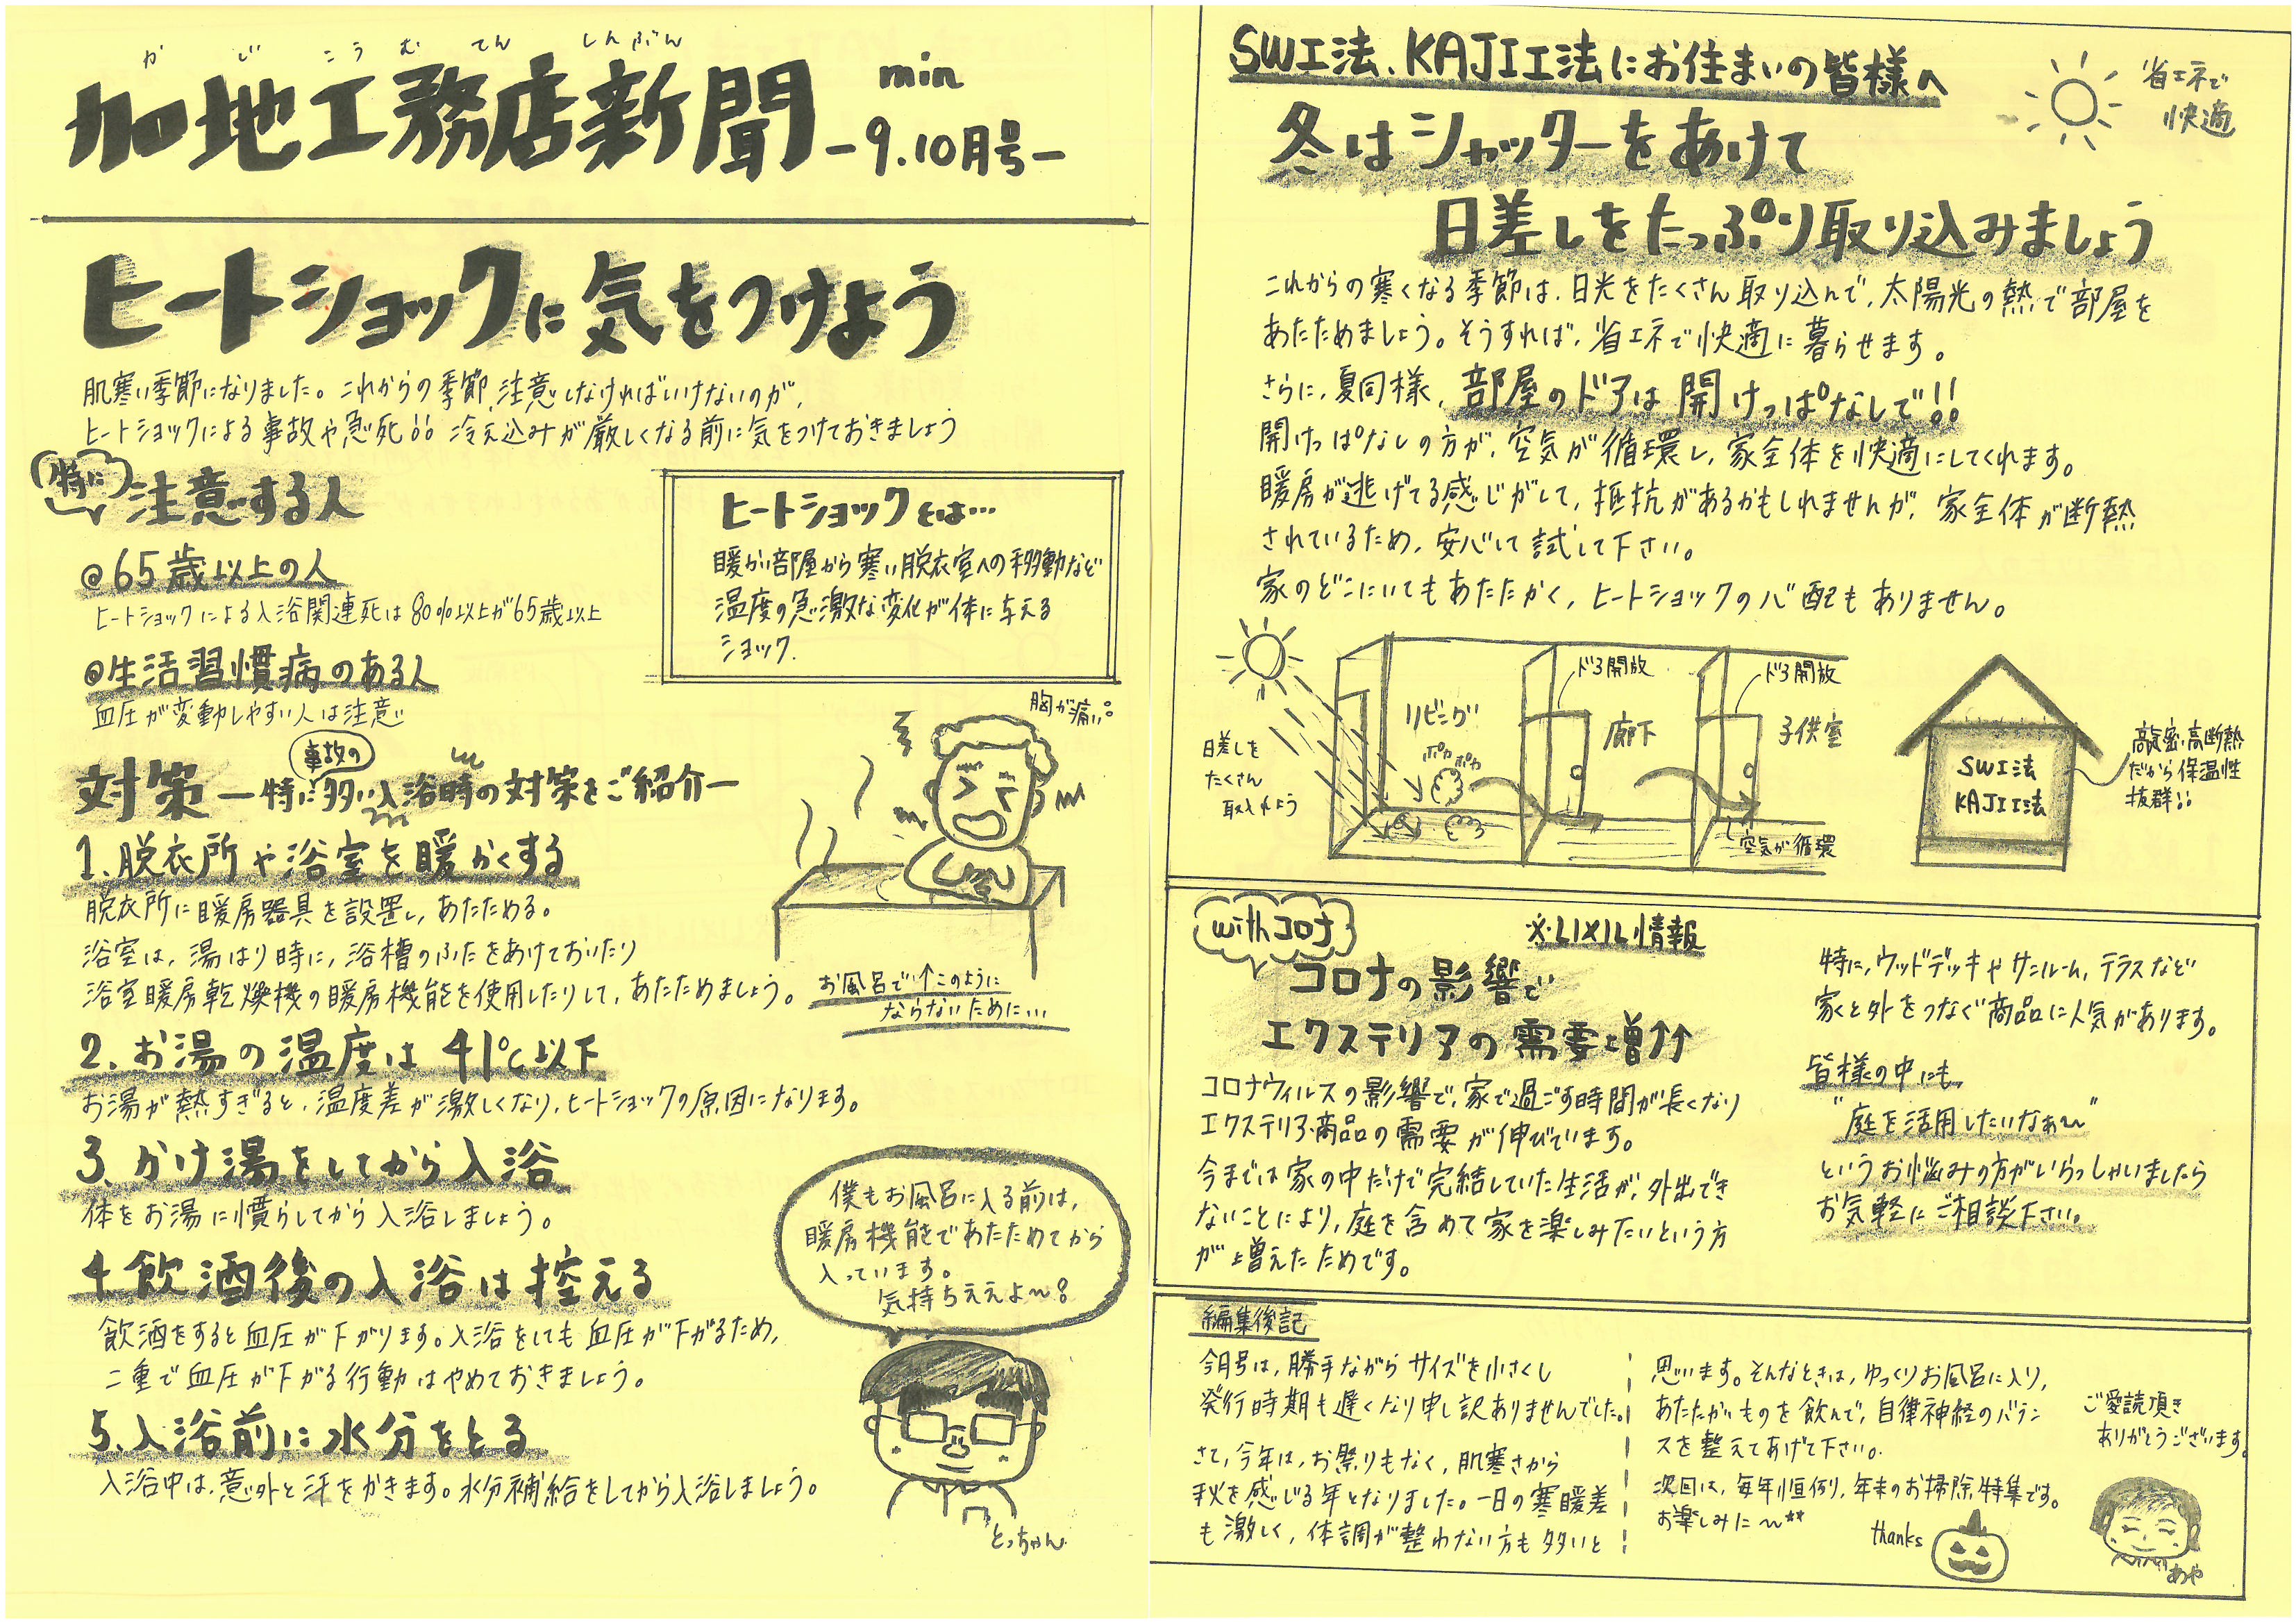 かじこうむてんしんぶん
加地工務店新聞
min
-9.10月号-
ヒートショックに気をつけよう
肌寒い季節になりました。これからの季節、注意しなければいけないのが、
ヒートショックによる事故や急死!! 冷え込みが厳しくなる前に気をつけておきましょう
特に
注意する人
@65歳以上の人
ヒートショックによる入浴関連死は80%以上が65歳以上
@生活習慣病のある人
血圧が変動しやすい人は注意
ヒートショックとは…
暖かい部屋から寒い脱衣室への移動など
温度の急激な変化が体に与える
ショック.
対策 -特に事故の多い入浴時の対策をご紹介-
1.脱衣所や浴室を暖かくする
脱衣所に暖房器具を設置し、あたためる。
浴室は、湯はり時に、浴槽のふたをあけておいたり
浴室暖房乾燥機の暖房機能を使用したりして、あたためましょう。
胸が痛い。
お風呂で↑このように
ならないために…
2.お湯の温度は41℃以下
お湯が熱すぎると、温度差が激しくなり、ヒートショックの原因になります。
3.かけ湯をしてから入浴
体をお湯に慣らしてから入浴しましょう。
4.飲酒後の入浴は控える
飲酒をすると血圧が下がります。入浴をしても血圧が下がるため、
二重で血圧が下がる行動はやめておきましょう。
5.入浴前に水分をとる
入浴中は、意外と汗をかきます。水分補給をしてから入浴しましょう。
僕もお風呂に入る前は、
暖房機能であたためてから
入っています。
気持ちええよ〜!
とっちゃん
SW工法、KAJI工法にお住まいの皆様へ
省エネで
快適
冬はシャッターをあけて
日差しをたっぷり取り込みましょう
これからの寒くなる季節は、日光をたくさん取り込んで、太陽光の熱で部屋を
あたためましょう。そうすれば、省エネで快適に暮らせます。
さらに、夏同様、部屋のドアは開けっぱなしで!!
開けっぱなしの方が、空気が循環し、家全体を快適にしてくれます。
暖房が逃げてる感じがして、抵抗があるかもしれませんが、家全体が断熱
されているため、安心して試して下さい。
家のどこにいてもあたたかく、ヒートショックの心配もありません。
日差しを
たくさん
取入れよう
リビング
ポカポカ
ドア開放
廊下
ドア開放
子供室
空気が循環
SW工法
KAJI工法
高気密・高断熱
だから保温性
抜群!!
withコロナ
※LIXIL情報
コロナの影響で
エクステリアの需要増↑↑
コロナウィルスの影響で、家で過ごす時間が長くなり
エクステリア商品の需要が伸びています。
今までは家の中だけで完結していた生活が、外出でき
ないことにより、庭を含めて家を楽しみたいという方
が増えたためです。
特に、ウッドデッキやサンルーム、テラスなど
家と外をつなぐ商品に人気があります。
皆様の中にも
"庭を活用したいなぁ〜"
というお悩みの方がいらっしゃいましたら
お気軽にご相談下さい。
編集後記
今月号は、勝手ながらサイズを小さくし
発行時期も遅くなり申し訳ありませんでした。
さて、今年は、お祭りもなく、肌寒さから
秋を感じる年となりました。一日の寒暖差
も激しく、体調が整わない方も多いと
思います。そんなときは、ゆっくりお風呂に入り、
あたたかいものを飲んで、自律神経のバラン
スを整えてあげて下さい。
次回は、毎年恒例、年末のお掃除特集です。
お楽しみに〜**
thanks
ご愛読頂き
ありがとうございます。
あや